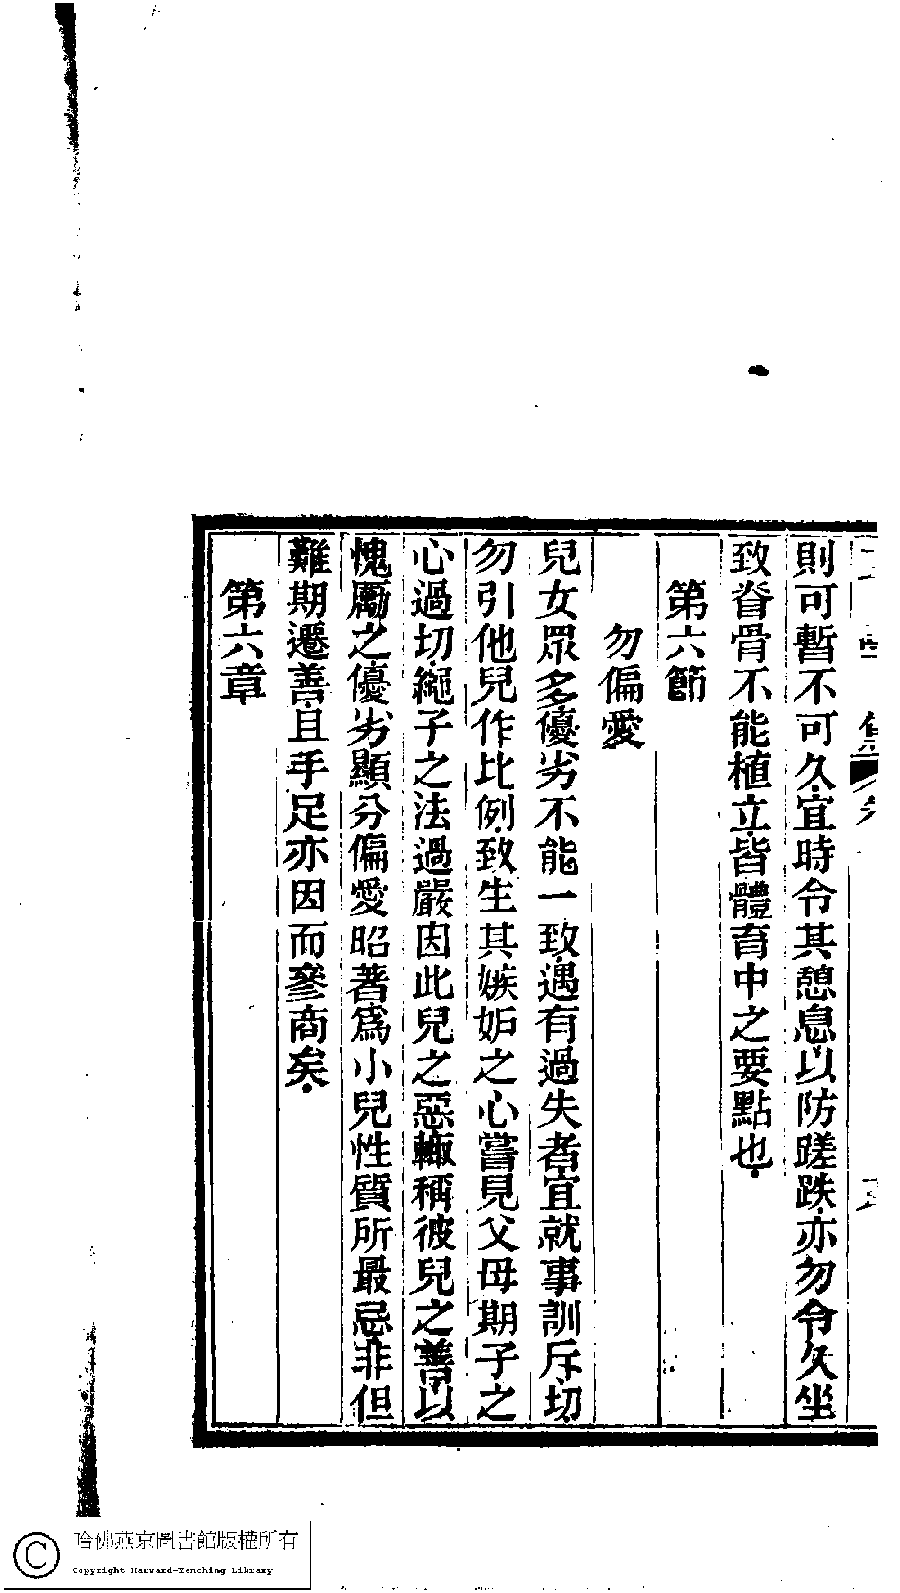 則可暫不可久宜時令其憩息以防蹉跌亦勿令久坐
致脊骨不能植立皆體育中之要點也
第六節
勿偏愛
兒女眾多優劣不能一致遇有過失者宜就事訓斥切
勿引他兒作比例致生其嫉妒之心嘗見父母期子之
心過切繩子之法過嚴因此兒之惡輙稱彼兒之善以
愧勵之優劣顯分偏愛昭著爲小兒性質所最忌非但
難期遷善且手足亦因而參商矣
第六章
哈佛燕京圖書館版權所有
Copyright Harvard-Yenching Library